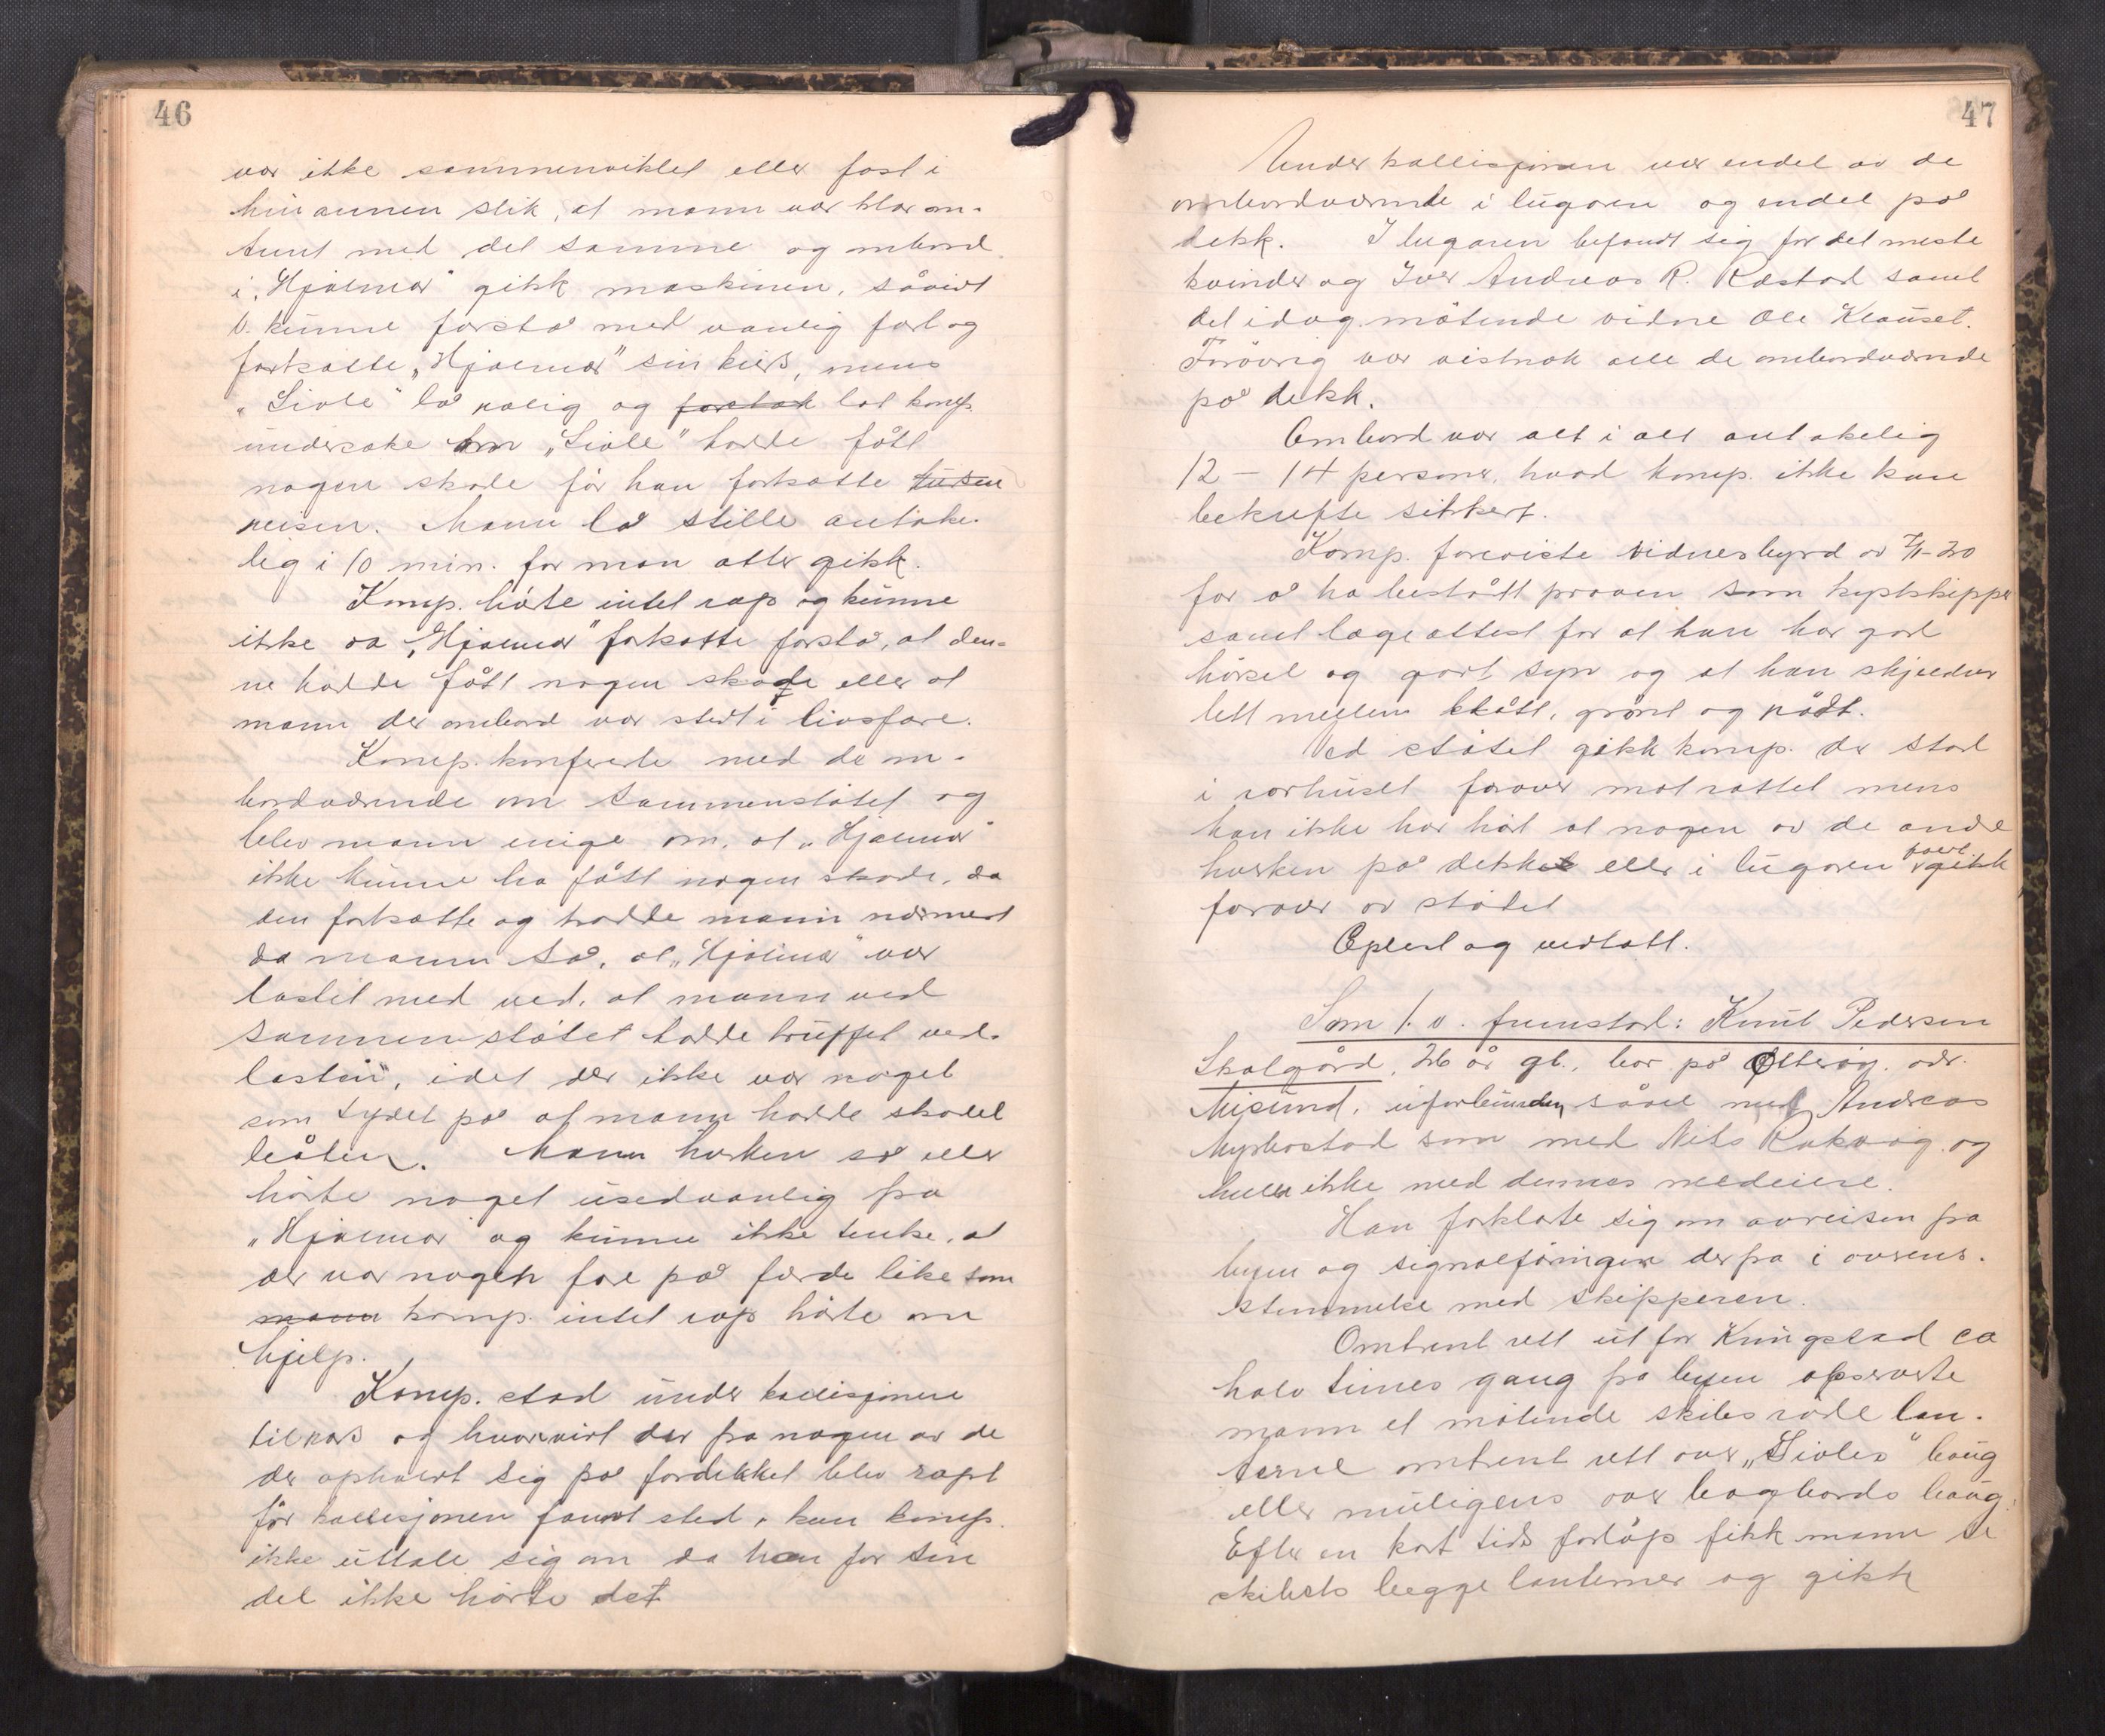 46
var ikke sammenviklet eller fast i
hinannen slik, at mann var klar om-
trent med det samme og ombord
i "Hjalmar" gikk maskinen, såvidt
v. kunne forstå med vanlig fart og
fortsatte "Hjalmar" sin kurs, mens
"Sivle" lå rolig og forstod lot komp.
undersøke om "Sivle" hadde fått
nogen skade før han fortsatte turen
reisen. Mann lå stille antake-
lig i 10 min. før man atter gikk.
Komp. hørte intet rop og kunne
ikke da "Hjalmar" fortsatte forstå, at den-
ne hadde fått nogen skade eller at
mann der ombord var stedt i livsfare.
Komp. konfererte med de om-
bordværende om sammenstøtet og
blev mann enige om, at "Hjalmar"
ikke kunne ha fått nogen skade, da
den fortsatte og trodde mann nærmest
da mann så, at "Hjalmar" var
lastet med ved, at mann ved
sammenstøtet hadde truffet ved-
lasten, idet der ikke var noget
som tydet på at mann hadde skadet
båten. Mann hverken så eller
hørte noget usedvanlig fra
"Hjalmar" og kunne ikke tenke, at
der var nogen fare på færde like som
mann komp. intet rop hørte om
hjelp.
Komp. stod under kollisjonen
tilrors og hvorvidt der fra nogen av de
der opholdt sig på fordekket blev ropt
før kollisjonen fandt sted, kan komp.
ikke uttale sig om da han for sin
del ikke hørte det
47
Under kollisjonen var endel av de
ombordværende i lugaren og endel på
dekk. I lugaren befandt sig for det meste
kvinder og Iver Andreas R. Røstad samt
det idag møtende vidne Ole Klauset.
Forøvrig var vistnok alle de ombordværende
på dekk.
Ombord var alt i alt antakelig
12 - 14 personer, hvad komp. ikke kan
bekrefte sikkert.
Komp. foreviste vidnesbyrd av 7/1-20
for å ha bestått prøven som kystskipper
samt lægeattest for at han har god
hørsel og godt syn og at han skjelder
lett mellem blått, grønt og rødt.
Ved støtet gikk komp. der stod
i rorhuset forover mot rattet mens
han ikke har hørt at nogen av de andre
hverken på dekket eller i lugaren falt gikk
forover av støtet
Oplest og vedtatt.
Som 1. v. fremstod: Knut Pedersen
Skalgård, 26 år gl., bor på Otterøy. adr.
Misund, uforbunden såvel med Andreas
Myrbostad som med Nils Rakvåg og
heller ikke med dennes medeiere.
Han forklarte sig om avreisen fra
byen og signalføringen derfra i overens-
stemmelse med skipperen.
Omtrent rett ut for Kringstad ca
halv times gang fra byen observerte
mann et møtende skibs røde lan-
terne omtrent rett over "Sivles" baug
eller muligens over bagbords baug.
Efter en kort tids forløp fikk mann se
skibets begge lanterner og gikk